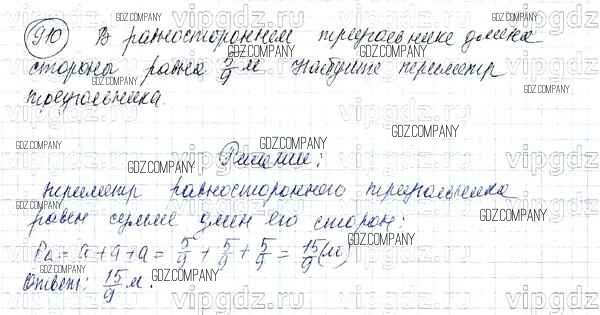 910 В равностороннем треугольнике длина
стороны равна 5/9 м Найдите периметр
треугольника.
Решение:
Периметр равностороннего треугольника
равен сумме длин его сторон:
P△ = a + a + a = 5/9 + 5/9 + 5/9 = 15/9 (м)
Ответ: 15/9 м.
GDZ.COMPANY
vipgdz.ru